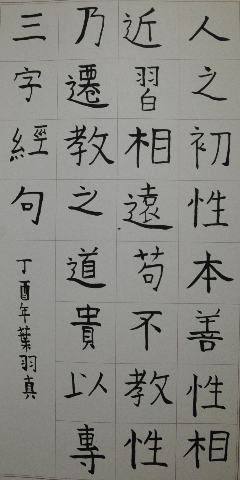 人之初性本善性相
近習相遠苟不教性
乃遷教之道貴以專
三字經句
丁酉年葉羽真